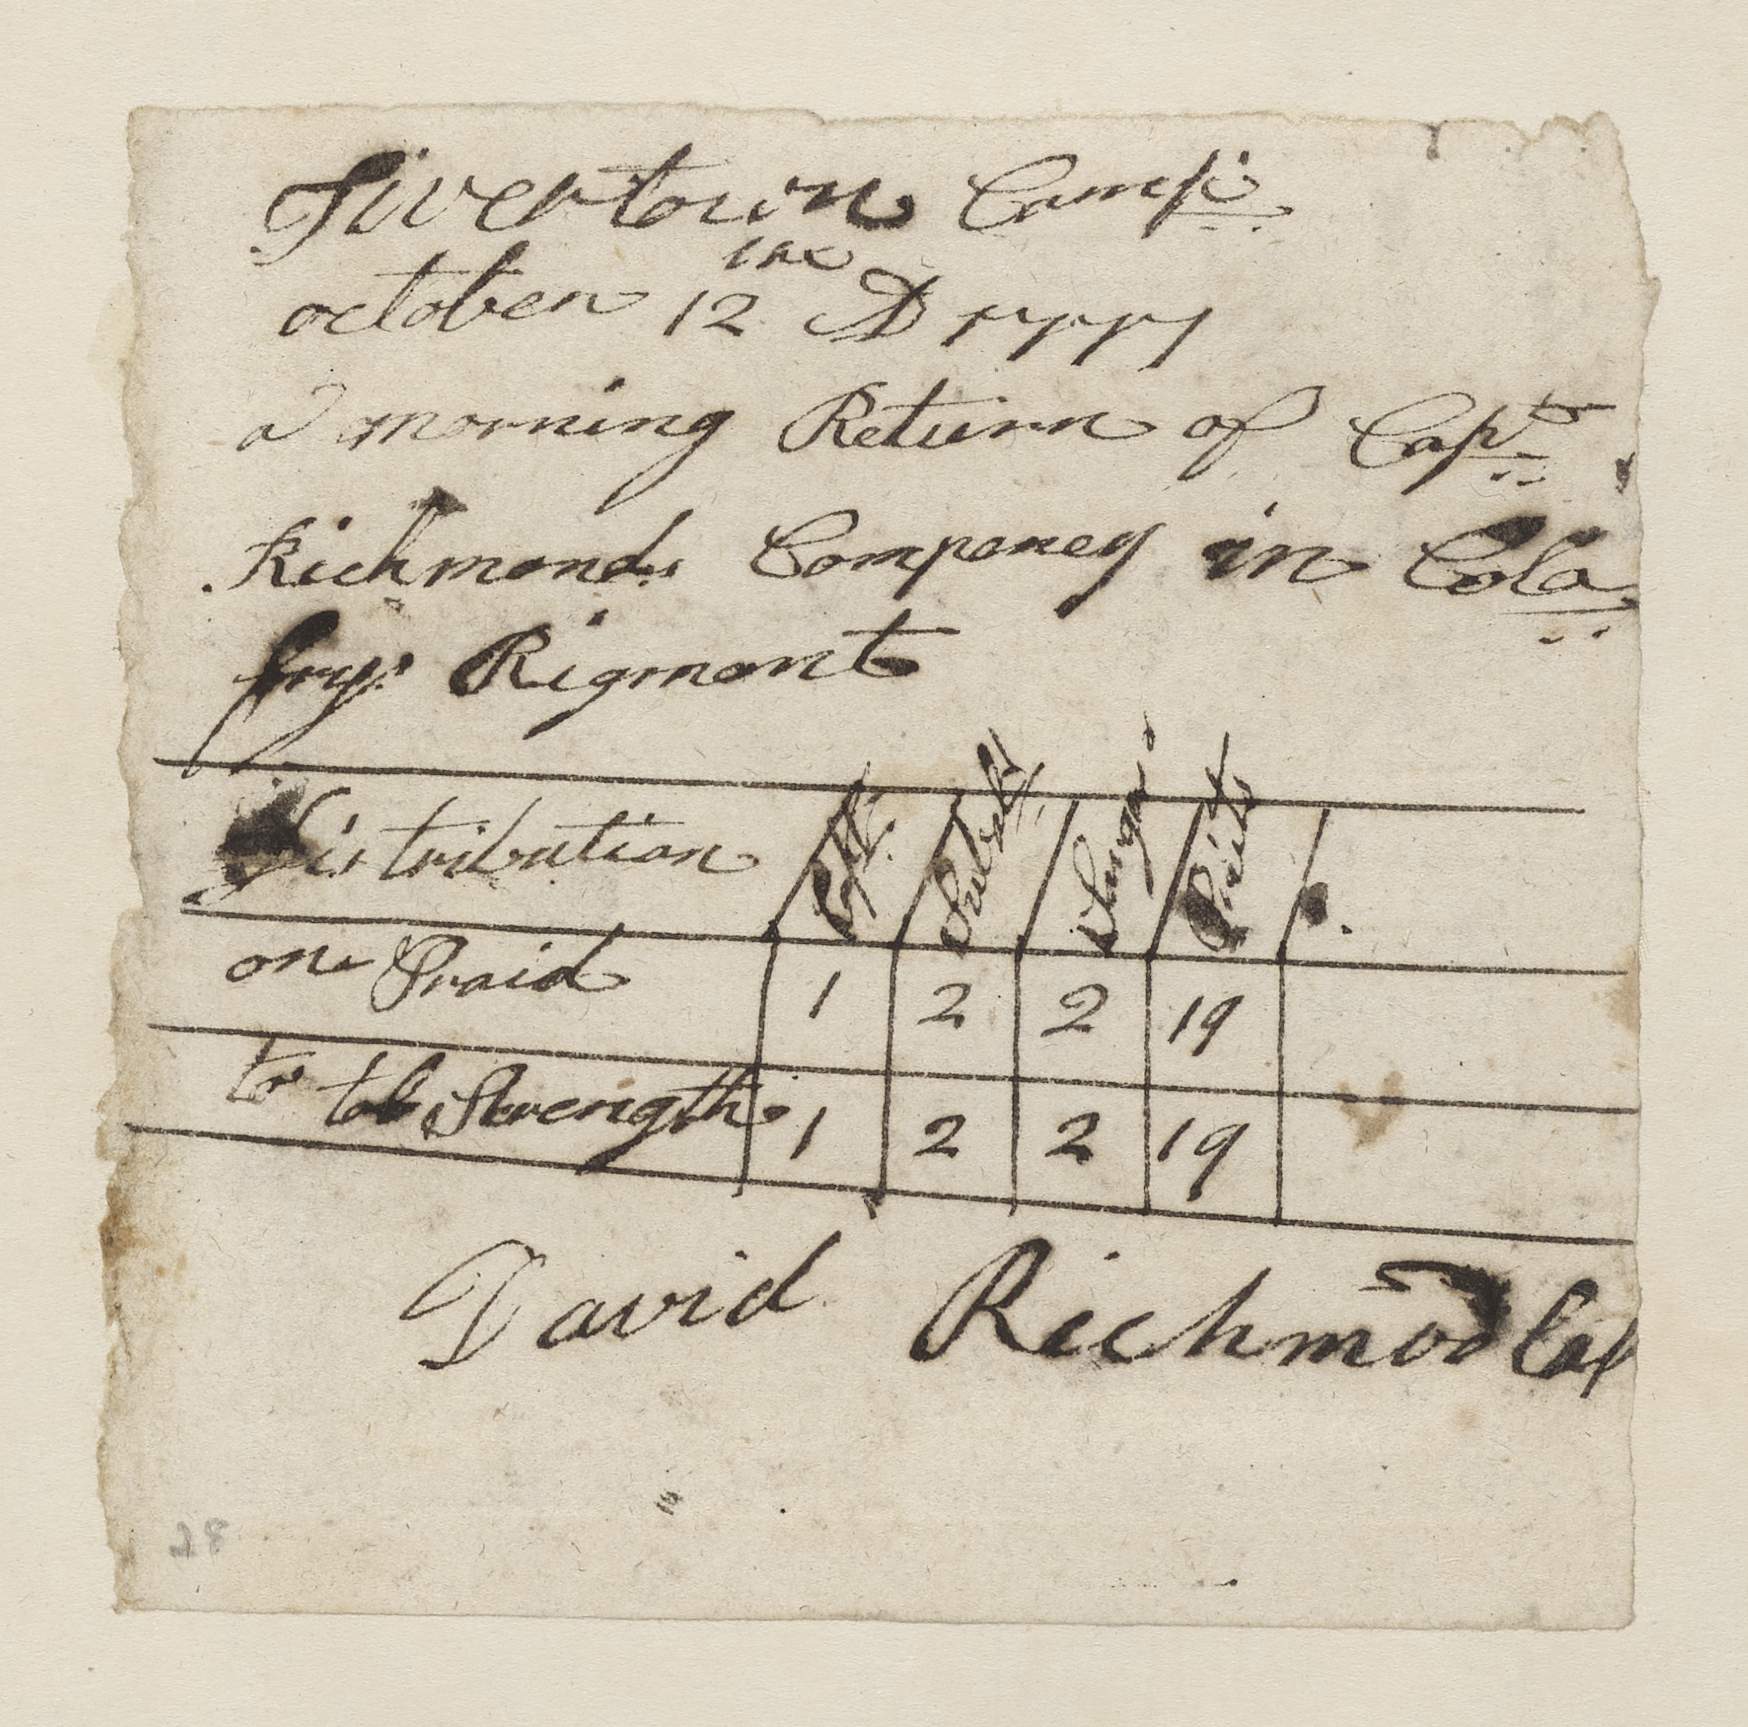 Tivertown Camp
october 12 the AD 1777
a morning Return of Capt
Richmonds Compeney in Cola
frys Rigmont
Distribution Cpt Subalt Sergn Privt
on Praid 1 2 2 19
to tol Strength 1 2 2 19
David Richmod Cap
28